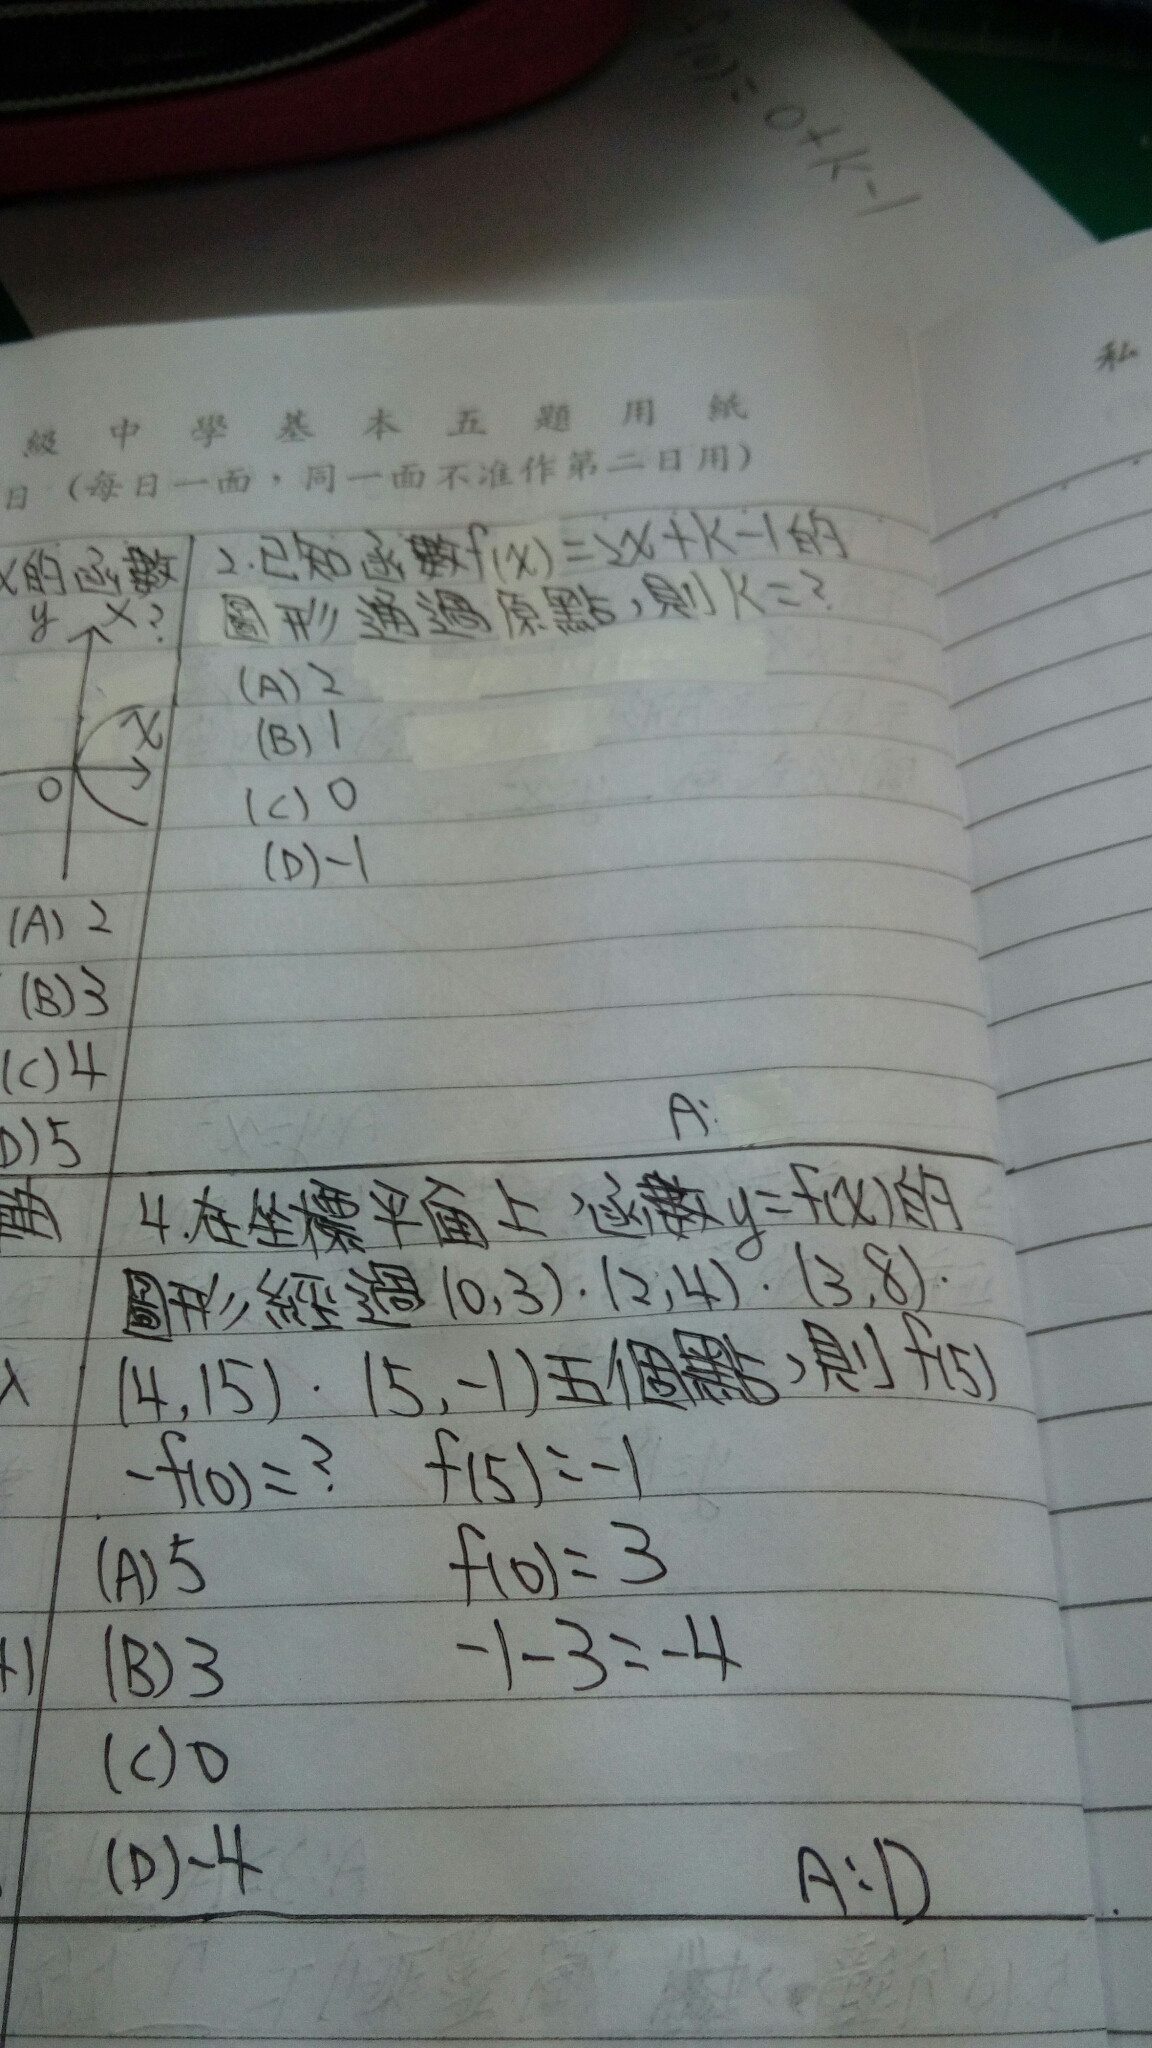 (0)=0+k-1
私
級中學基本五題用紙
日(每日一面,同一面不准作第二日用)
x的函數
x?
y
x
0
(A) 2
(B) 3
(C) 4
D) 5
2.已知函數f(x)=2x+k-1的
圖形通過原點,則k=?
(A) 2
(B) 1
(C) 0
(D) -1
A:
4.在坐標平面上,函數y=f(x)的
圖形經過(0,3).(2,4).(3,8).
(4,15).(5,-1)五個點,則f(5)
-f(0)=? f(5)=-1
(A) 5 f(0)=3
(B) 3 -1-3=-4
(C) 0
(D) -4
A:D
x
+1